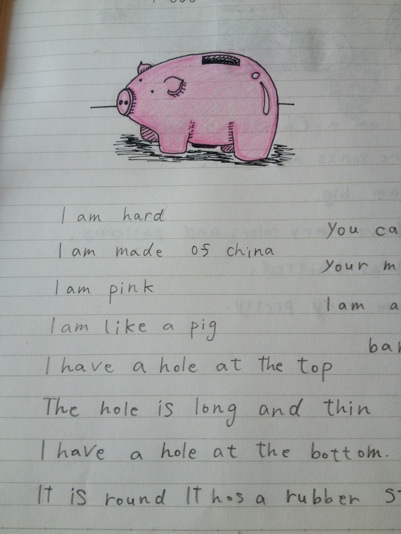 I am hard
I am made of china
I am pink
I am like a pig
I have a hole at the top
The hole is long and thin
I have a hole at the bottom.
It is round It has a rubber
you
your
I am a